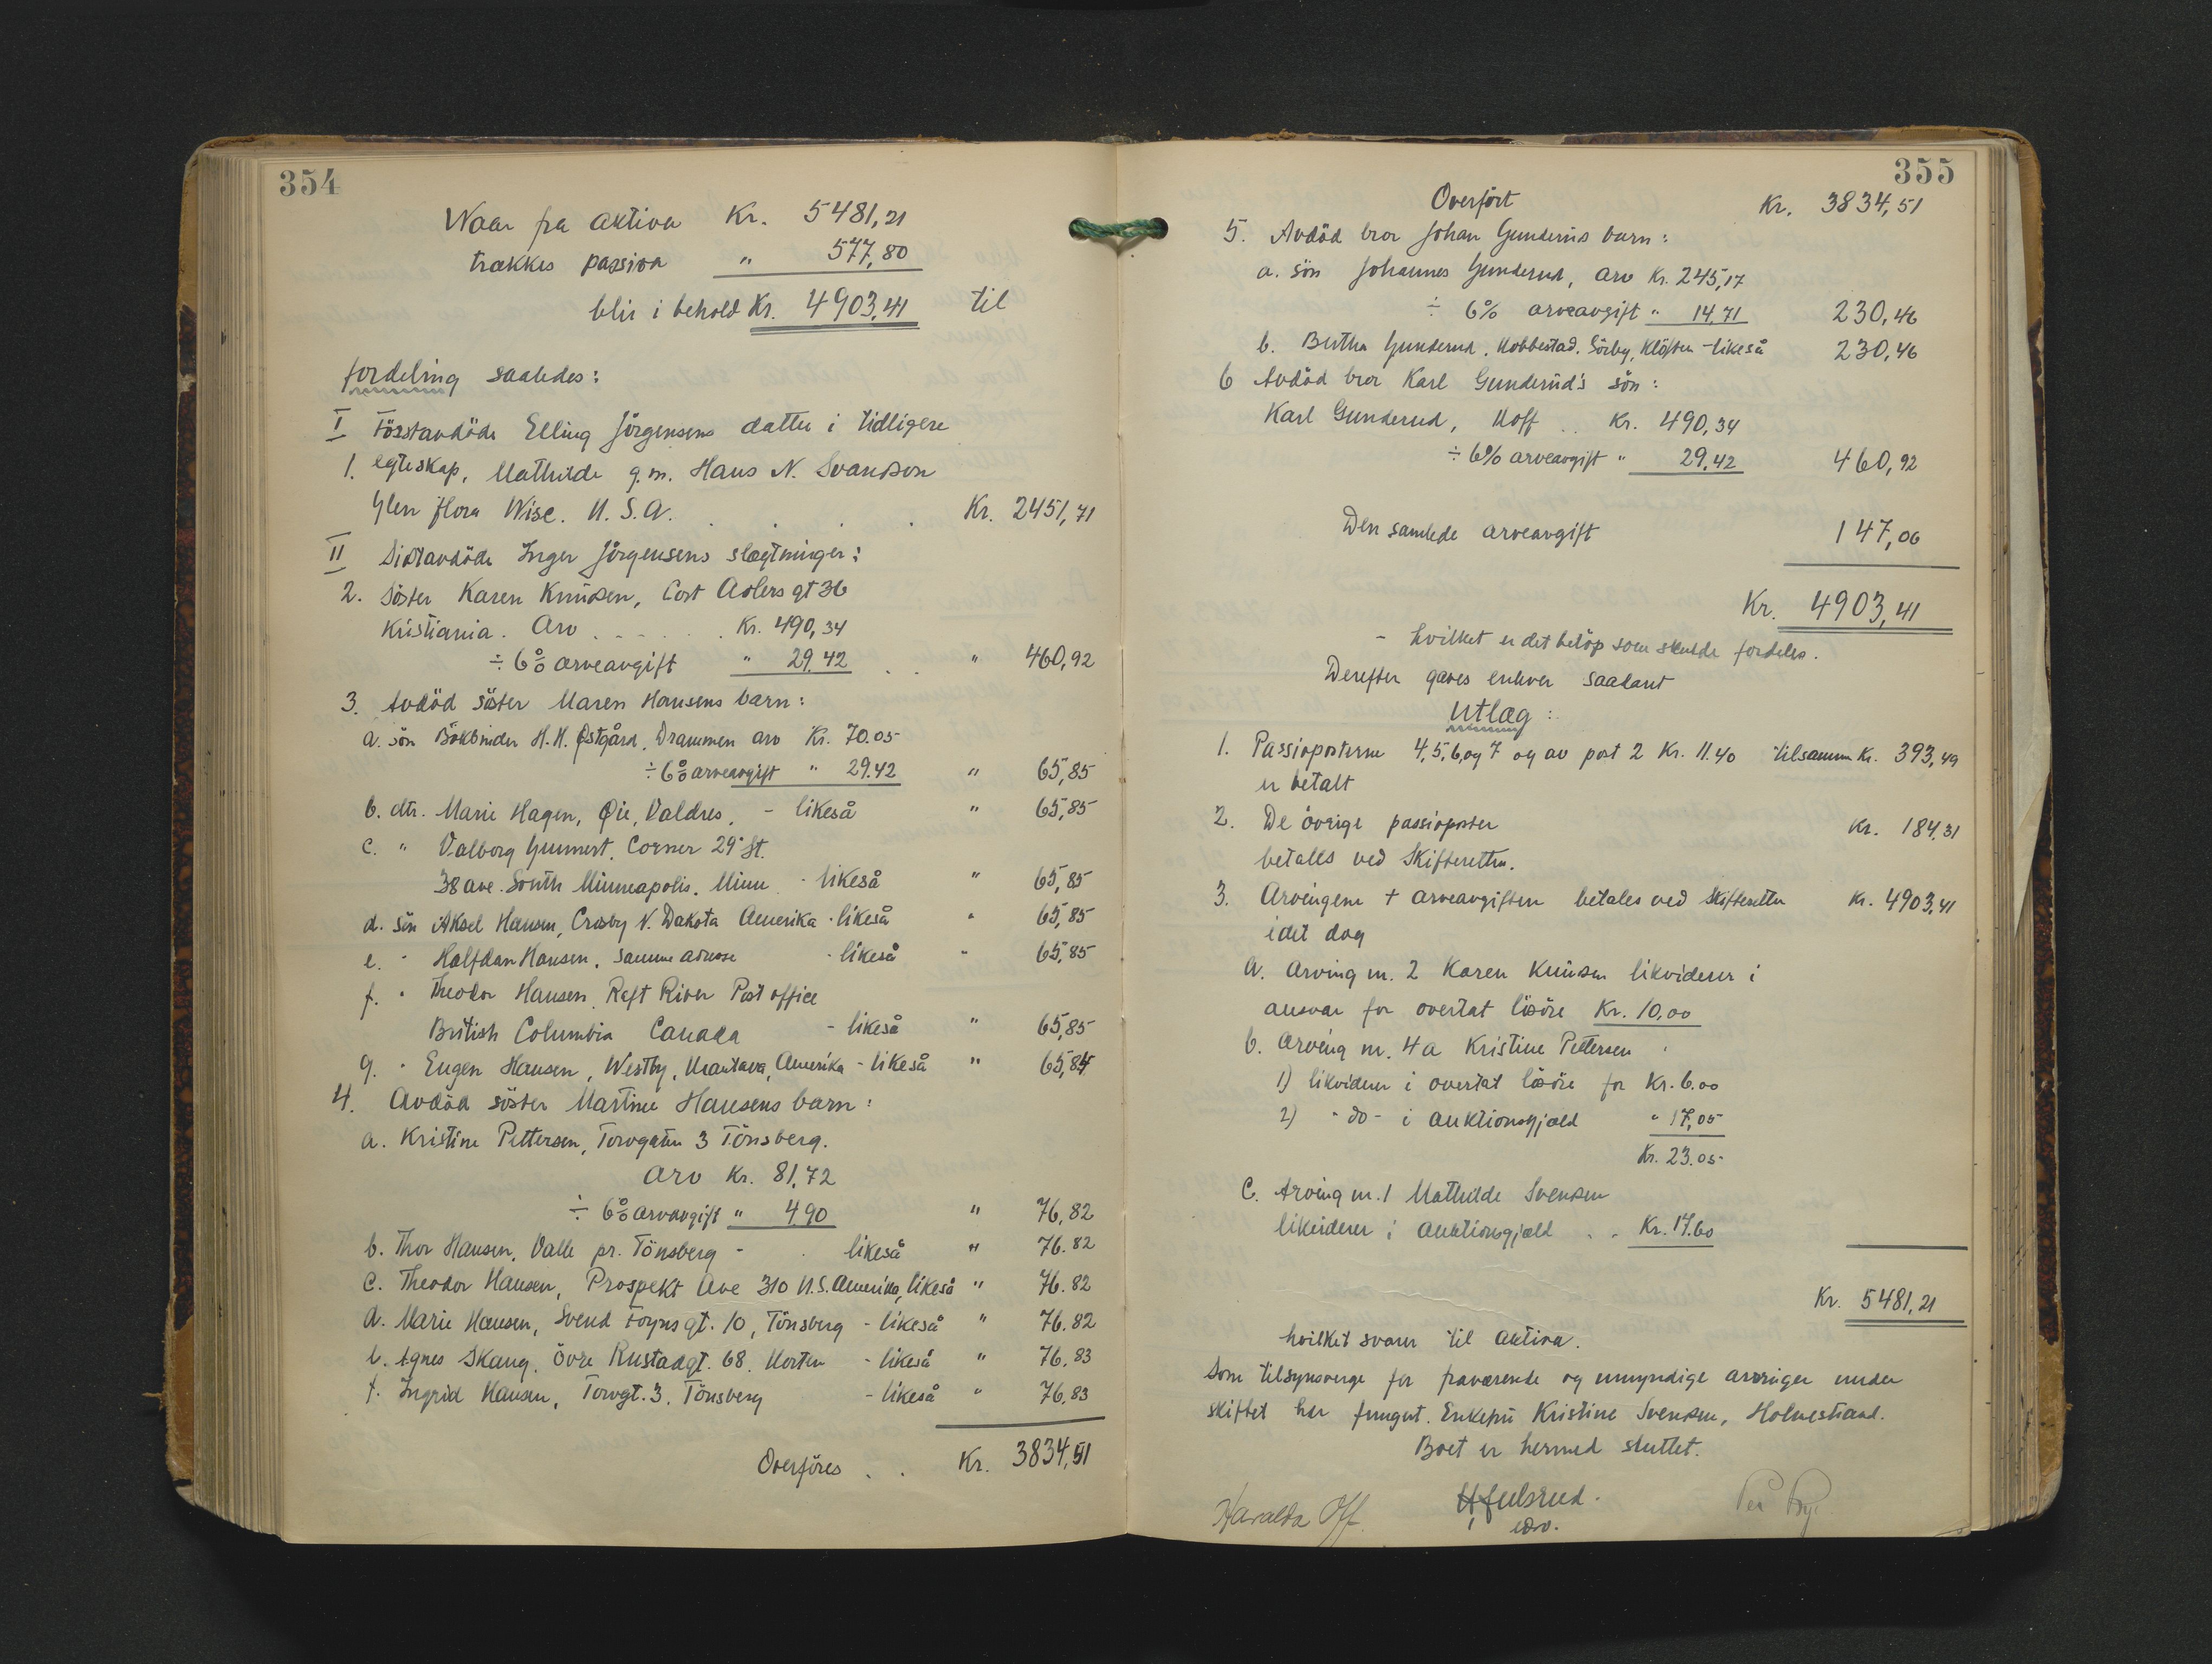 354
Naar fra aktiva Kr. 5481,21
trækkes passiva " 577,80
blir i behold Kr. 4903,41 til
fordeling saaledes:
I Förstavdöde Elling Jörgensens datter i tidligere
1. egteskap, Mathilde g.m. Hans N. Svandson
Glen flora Wisc. U.S.A. . . . . Kr. 2451,71
II Sistavdöde Inger Jörgensens slægtninger:
2. Söster Karen Knudsen, Cort Adlers gt 36
Kristiania. Arv . . . . . Kr. 490,34
÷ 6% arveavgift " 29.42 . . " 460,92
3. Avdöd söster Maren Hansens barn:
a. sön Bokbinder H.H. Østgård, Drammen arv Kr. 70.05
÷ 6% arveavgift " 29.42 " 65,85
b. dtr. Marie Hagen, Øie, Valdres, - likeså " 65,85
c. " Valborg Gunnert, Corner 29' St.
38 ave. South Minneapolis. Minn - likeså " 65,85
d. sön Aksel Hansen, Crosby N. Dakota Amerika - likeså " 65,85
e. " Halfdan Hansen, samme adresse - likeså " 65,85
f. " Theodor Hansen Raft River Post office
British Columbia Canada - likeså " 65,85
g. " Eugen Hansen, Westby, Mantava, Amerika - likeså " 65,84
4. Avdöd söster Martine Hansens barn:
a. Kristine Pettersen, Torvgaten 3 Tönsberg.
Arv Kr. 81,72
÷ 6% arveavgift " 4.90 " 76,82
b. Thor Hansen, Valle pr. Tönsberg - likeså " 76.82
c. Theodor Hansen, Prospekt Ave 310 U.S. Amerika, likeså " 76.82
d. Marie Hansen, Svend Foynsgt. 10, Tönsberg - likeså " 76.82
e. Agnes Skaug, Övre Rustadgt. 68. Horten - likeså " 76.83
f. Ingrid Hansen, Torvgt. 3. Tönsberg - likeså " 76,83
Overföres . . Kr. 3834,51
355
Overfört Kr. 3834,51
5. Avdöd bror Johan Gunderuds barn:
a. sön Johannes Gunderud, arv Kr. 245,17
÷ 6% arveavgift " 14.71 230,46
b. Bertha Gunderud, Hobbestad. Sörby, Klöften - likeså 230,46
6 Avdöd bror Karl Gunderud's sön:
Karl Gunderud, Hoff . . Kr. 490,34
÷ 6% arveavgift " 29.42 460,92
Den samlede arveavgift 147,06
Kr. 4903,41
- hvilket er det belöp som skulde fordeles.
Derefter gaves enhver saadant
Utlæg:
1. Passivposterne 4,5,6,og 7 og av post 2 Kr. 11.40 tilsammen Kr. 393,49
er betalt
2. De övrige passivposter Kr. 184,31
betales ved Skifteretten.
3. Arvingene + arveavgiften betales ved Skifteretten Kr. 4903,41
idet dog
a. Arving nr. 2 Karen Knudsen likviderer i
ansvar for overtat lösöre Kr. 10,00
b. Arving nr. 4a Kristine Pettersen
1) likviderer i overtat lösöre for Kr. 6.00
2) - do - i auktionsgjæld " 17,05
Kr. 23.05
c. Arving nr. 1 Mathilde Svendsen
likviderer i auktionsgjæld . . Kr. 17.60
Kr. 5481,21
hvilket svarer til aktiva.
Som tilsynsverge for fraværende og umyndige arvinger under
skiftet har fungert. Enkefru Kristine Svendsen, Holmestrand.
Boet er hermed sluttet.
Haralda Off.